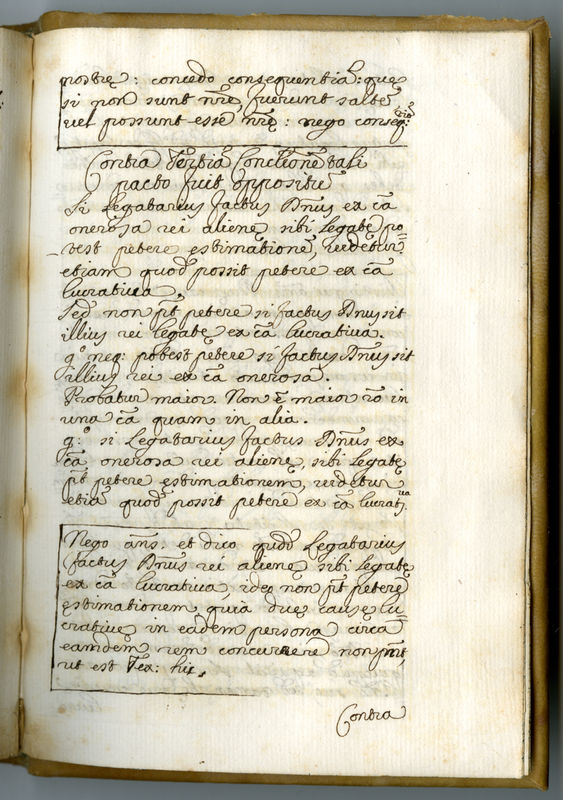 nostrę: concedo consequentiã: quę
si non sunt nr̃ę, fuerunt saltẽ
vel possunt esse nr̃ę: nego conseq:
Contra Tertiã Conct̃ionẽ tali
pacto fuit oppositũ
Si Legatarius factus Dñus ex cã
onerosa rei alienę sibi legatę po=
test petere estimationẽ, videtur
etiam quod possit petere ex cã
lucrativa.
Sed non pt̃ petere si factus Dñus sit
illius rei legatę ex cã lucrativa.
g.º neq: potest petere si factus Dñus sit
illius rei ex cã onerosa.
Probatur maior. Non ẽ maior rõ in
una cã quam in alia.
g.º: si Legatarius factus Dñus ex
cã onerosa rei alienę, sibi legatę
pt̃ petere estimationem, videtur
etiã quod possit petere ex cã lucrati:va
Nego añs. et dico quod Legatarius
factus Dñus rei alienę sibi legatę
ex cã lucrativa, ideo non pt̃ petere
ęstimationem, quia duę causę lu=
crativę in eadem persona circa
eamdem rem concurrere non pñt,
ut est Tex: hic.
Contra